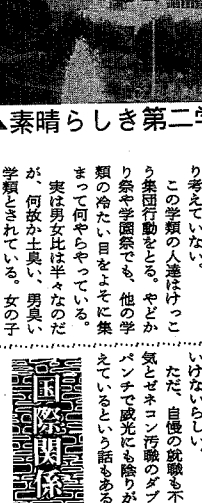 ▲素晴らしき第二学
り考えていない。
この学類の人達はけっこ
う集団行動をとる。やどか
り祭や学園祭でも、他の学
類の冷たい目をよそに集
まって何やらやっている。
実は男女比は半々なのだ
が、何故か土臭い、男臭い
学類とされている。女の子
いけないらしい。
ただ、自慢の就職も不
気とゼネコン汚職のダブ
パンチで威光にも陰りが
えているという話もある
国際関係